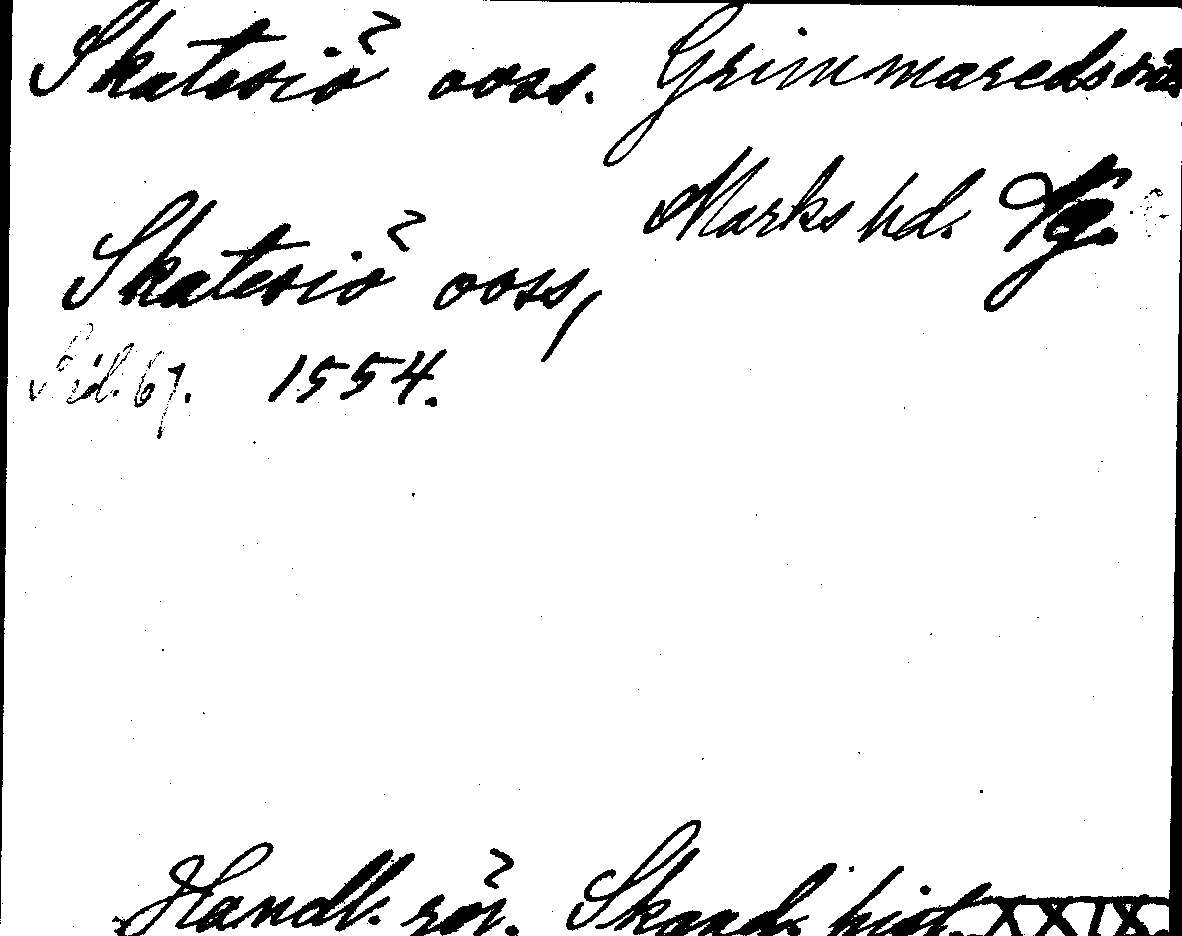 Skatesiö ooss. Grimmareds
Marks hd. Vg.
Skatesiö ooss,
Sid. 67. 1554.
Handl. rör. Skand. hist. XXIX.